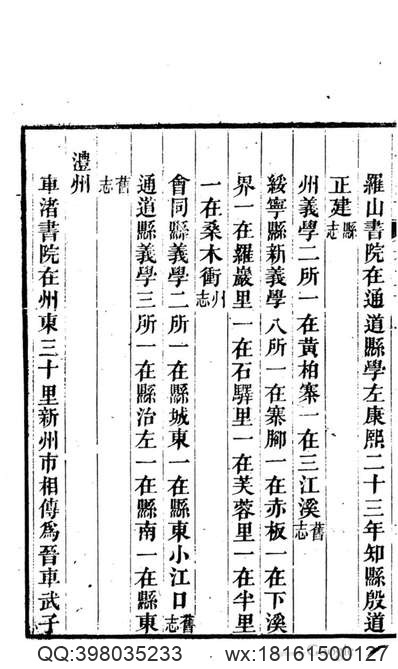 羅山書院在通道縣學左康熙二十三年知縣殷道
正建縣志
州義學二所一在黃柏寨一在三江溪舊志
綏寧縣新義學八所一在寨腳一在赤板一在下溪
界一在羅巖里一在石驛里一在芙蓉里一在半里
一在桑木衝州志
會同縣義學二所一在縣城東一在縣東小江口舊志
通道縣義學三所一在縣治左一在縣南一在縣東
舊志
澧州
車渚書院在州東三十里新州市相傳爲晉車武子
QQ:398035233 wx:18161500127